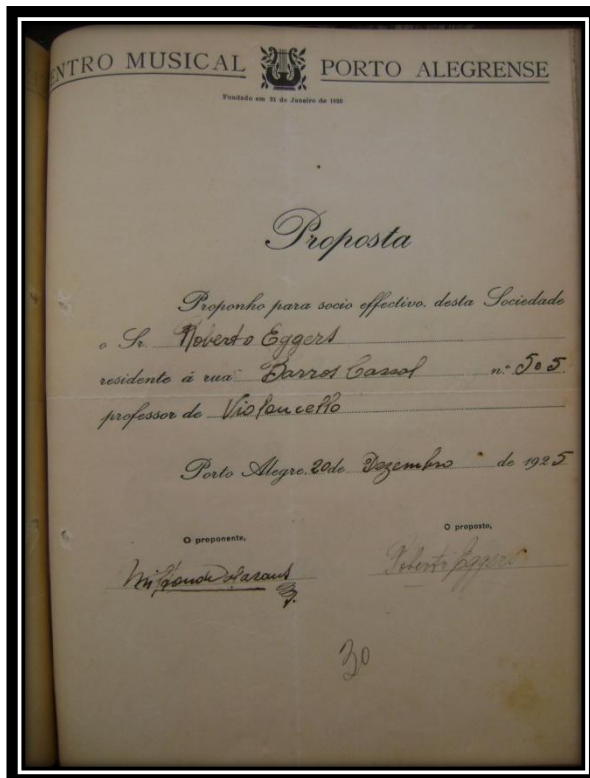 ENTRO MUSICAL PORTO ALEGRENSE
Fundado em 31 de Janeiro de 1920
Proposta
Proponho para socio effectivo. desta Sociedade
o Sr. Roberto Eggers
residente á rua Barros Cassal n.º 505
professor de Violoncello
Porto Alegre, 20 de Dezembro de 1925
O proponente, O proposto,
Roberto Eggers
30